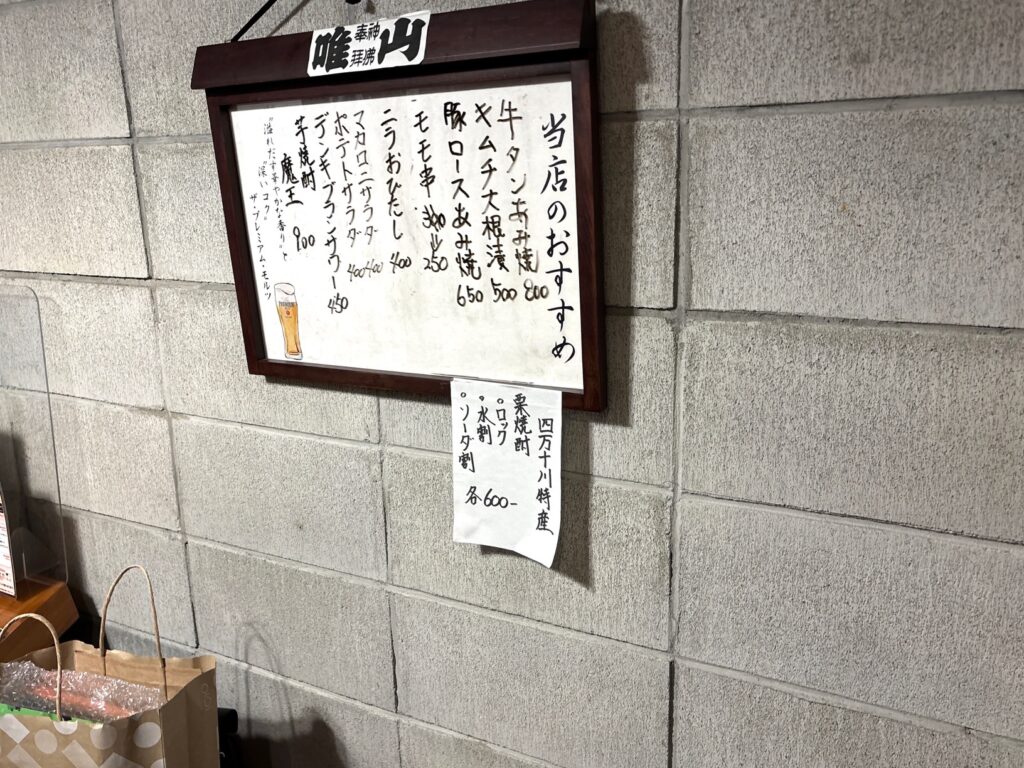 唯 奉神拝佛 山
当店のおすすめ
牛タンあみ焼 800
キムチ大根漬 500
豚ロースあみ焼 650
モモ串 300 250
ニラおひたし 400
マカロニサラダ 400
ポテトサラダ 400
デンキブランサワー 450
芋焼酎 魔王 900
"溢れだす華やかな香り"と
"深いコク"
ザ・プレミアム・モルツ
四万十川特産
栗焼酎
ロック
水割
ソーダ割
各600-